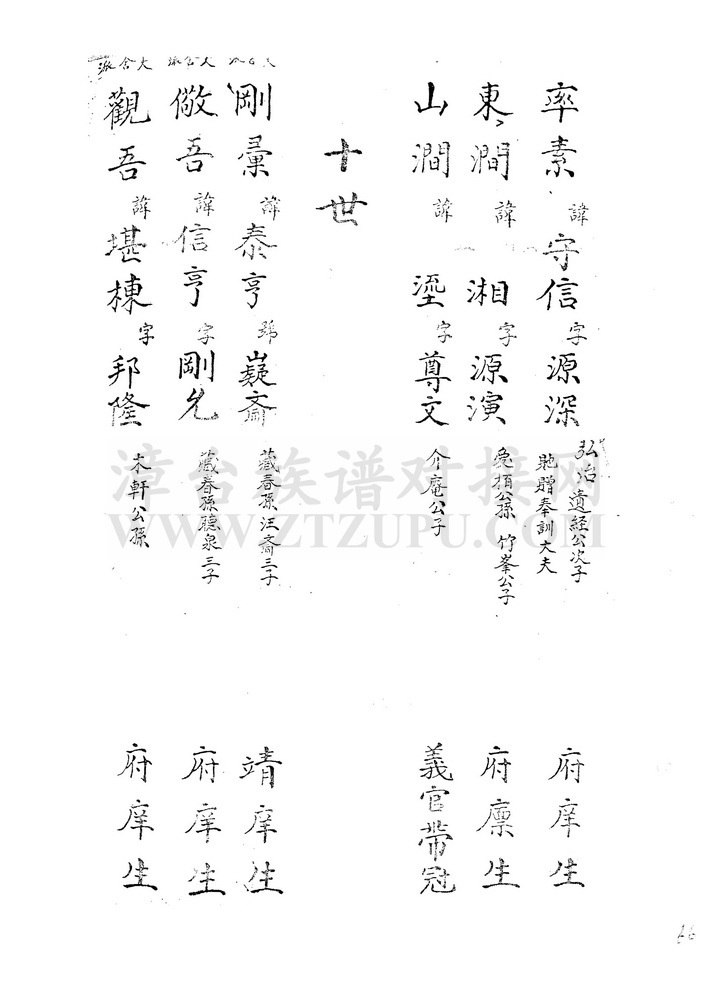 率素 諱 守信 字 源深 弘治遺經公次子 馳贈奉訓大夫 府庠生
東澗 諱 湘 字 源演 愛栢公孫 竹峯公子 府廩生
山澗 諱 瑬 字 尊文 介庵公子 義官帶冠
十世
剛彙 諱 泰亨 號 嶷齋 藏春孫汪齋三子 靖庠生
大宗派 儆吾 諱 信亨 字 剛允 藏春孫聽泉三子 府庠生
大宗派 觀吾 諱 堪棟 字 邦隆 木軒公孫 府庠生
漳台族谱对接网
WWW.ZTZUPU.COM
66